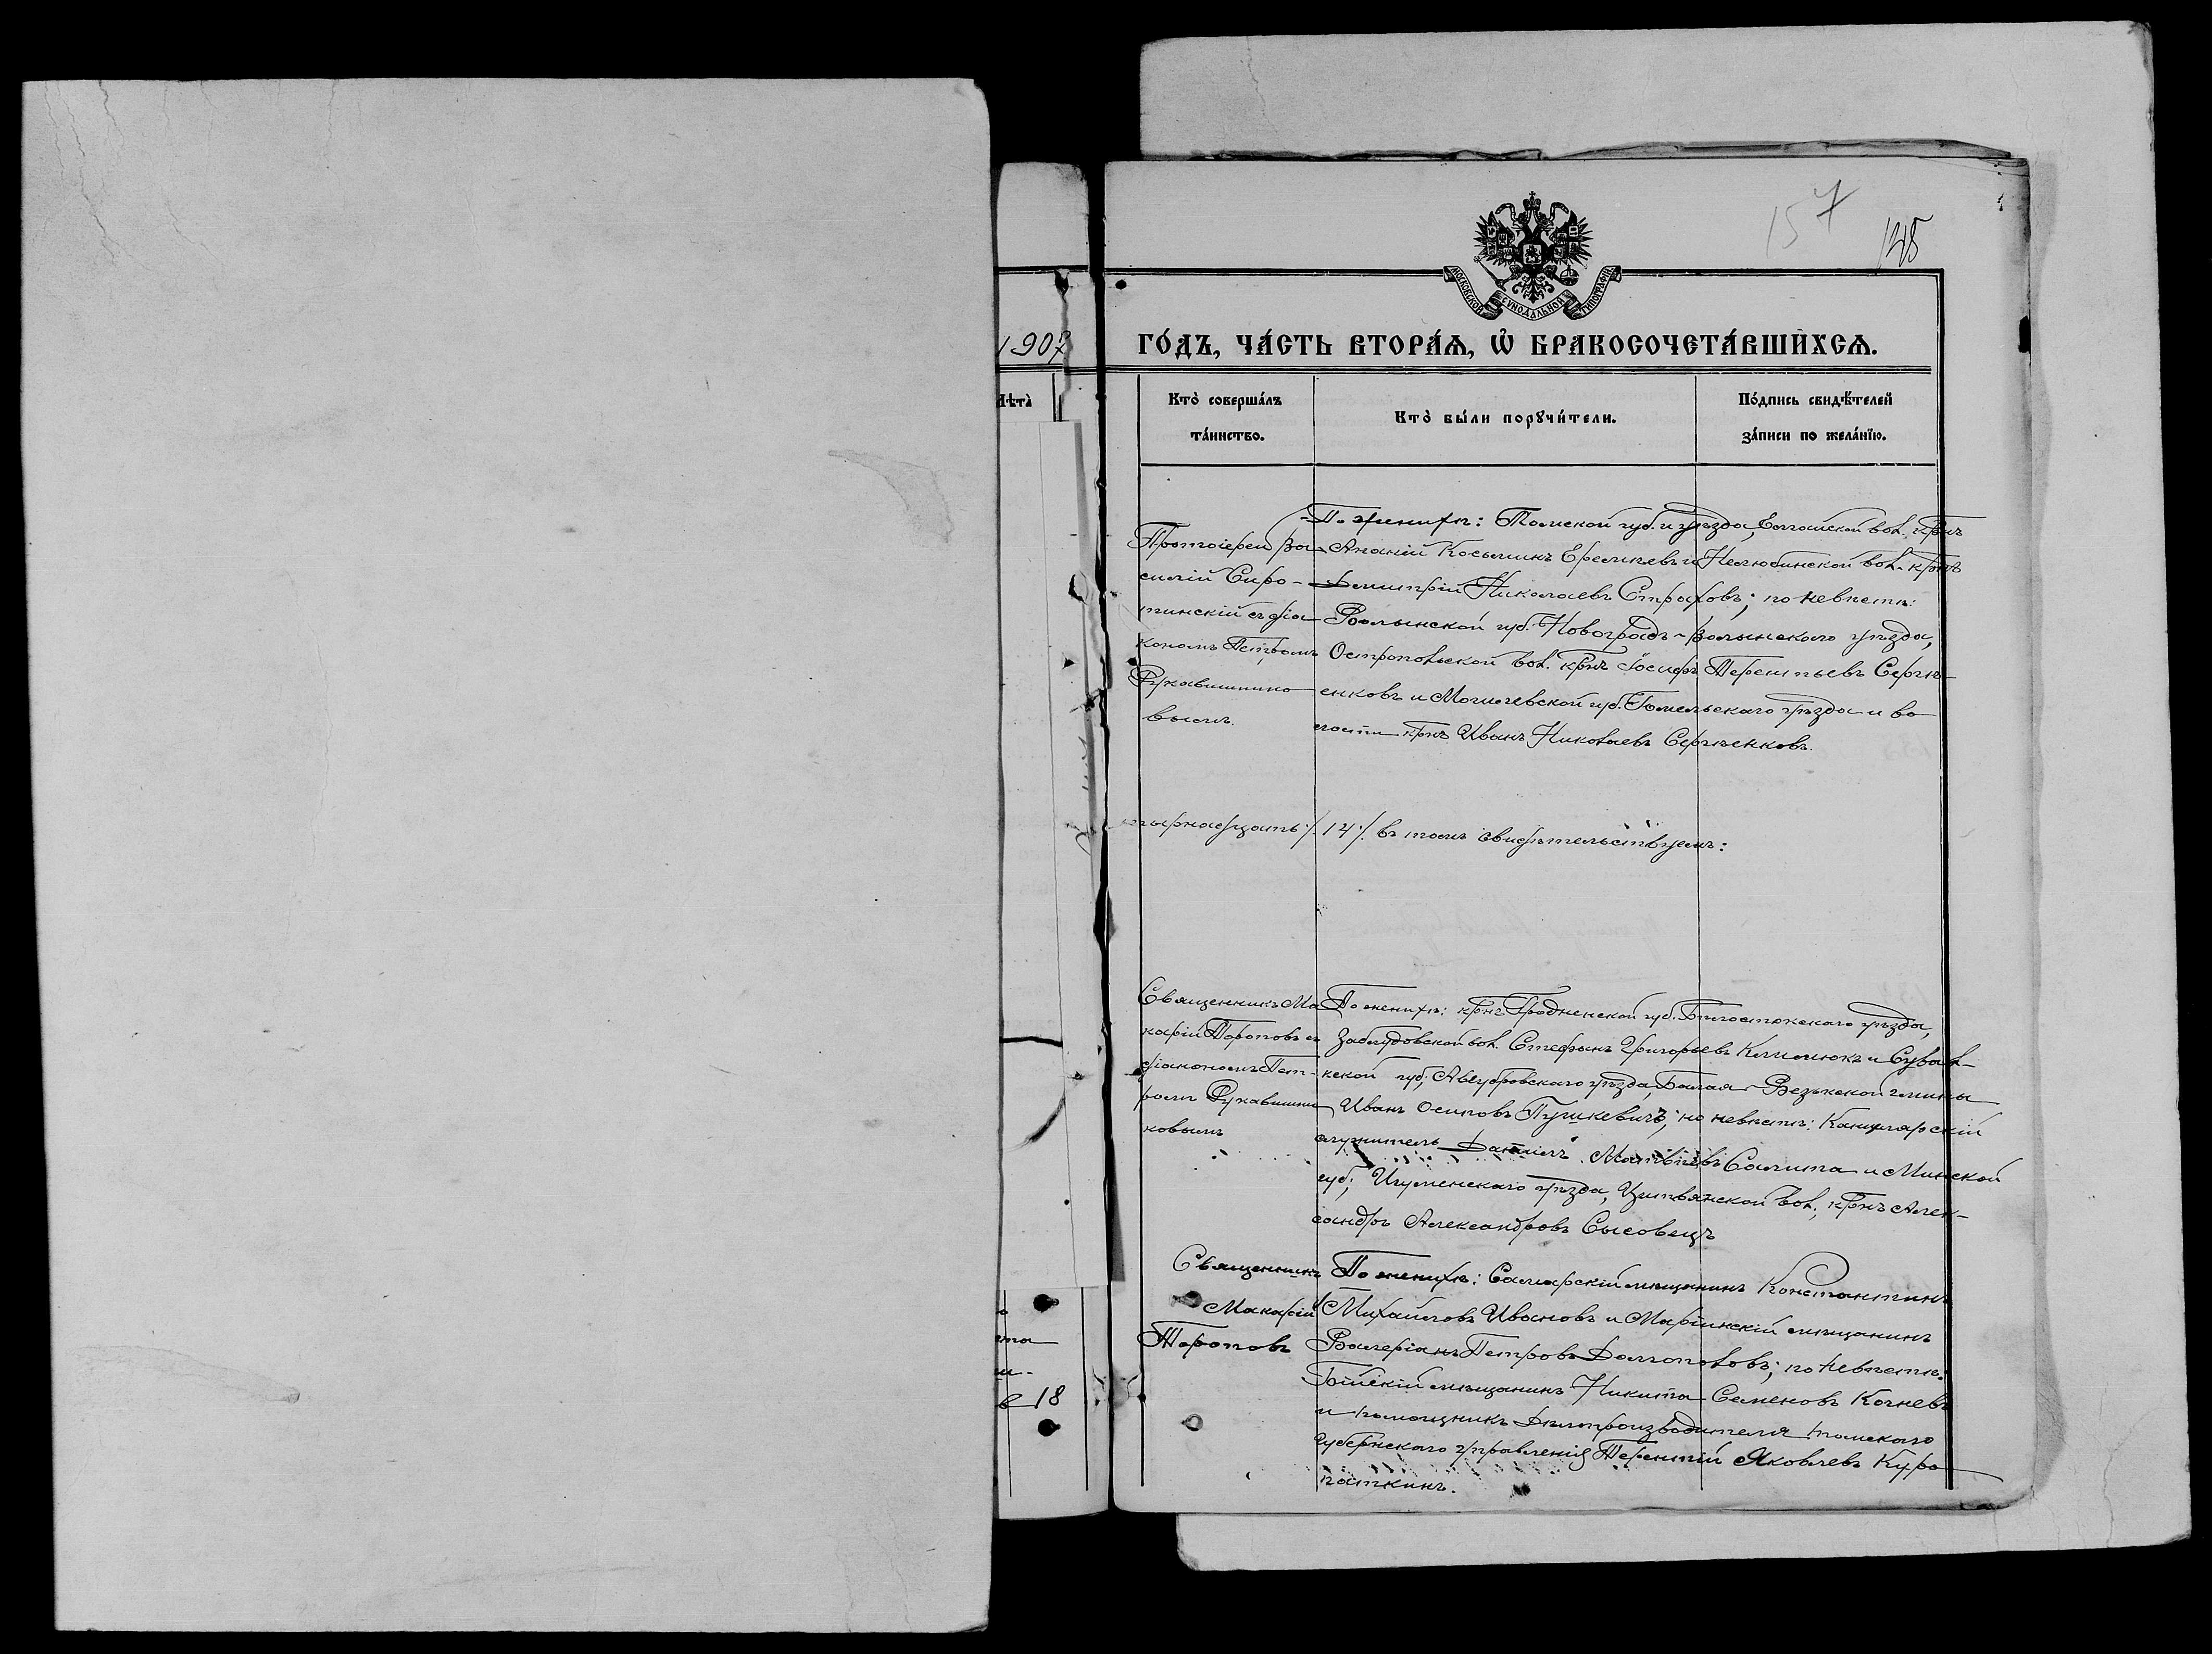 157
128
МОСКОВСКОЙ СѴНОДАЛЬНОЙ ТИПОГРАФІИ
1907 ГОДЪ, ЧАСТЬ ВТОРАЯ, Ѡ БРАКОСОЧЕТАВШИХСЯ.
лѣта
Кто совершалъ таинство.
Кто были порꙋчители.
Подпись свидѣтелей записи по желанїю.
Протоіерей Ва-
силій Сиро-
тинскій съ діа-
кономъ Петромъ
Рукавишнико-
вымъ.
По женихѣ: Томской губ. и уѣзда, вол. крнъ
Ананій Косьминъ Еремѣевъ и Нелюбинской вол. крнъ
Димитрій Николаевъ Страховъ; по невѣстѣ:
Волынской губ. Новоградъ-Волынскаго уѣзда,
Остропольской вол. крнъ Іосифъ Терентьевъ Сергѣ-
енковъ и Могилевской губ. Гомельскаго уѣзда и во-
лости крнъ Иванъ Николаевъ Сергѣенковъ.
тырнадцать /14/. въ томъ свидѣтельствуемъ:
Священникъ Ма-
карій Тороповъ съ
діакономъ Пет-
ромъ Рукавишни-
ковымъ
По женихѣ: крнъ Гродненской губ. Бѣлостокскаго уѣзда,
Заблудовской вол. Стефанъ Григорьевъ Климюкъ и Сувал-
кской губ. Августовскаго уѣзда, гмины
Иванъ Осиповъ Пушкевичъ; по невѣстѣ: Канцелярскій
служитель Даніилъ Матвѣевъ Салита и Минской
губ; Игуменскаго уѣзда, вол. крнъ Алек-
сандръ Александровъ Сысовецъ
Священникъ
Макарій
Тороповъ
По женихѣ: Самарскій мѣщанинъ Константинъ
Михайловъ Ивановъ и Маріинскій мѣщанинъ
Валеріанъ Петровъ Долгополовъ; по невѣстѣ:
Бійскій мѣщанинъ Никита Семеновъ Кочневъ
и помощникъ Дѣлопроизводителя томскаго
Губернскаго управленія Терентій Яковлевъ Куро-
паткинъ.
18